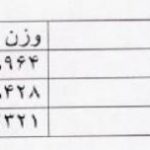 وزن
۹۶۴
۴۲۸
۳۲۱